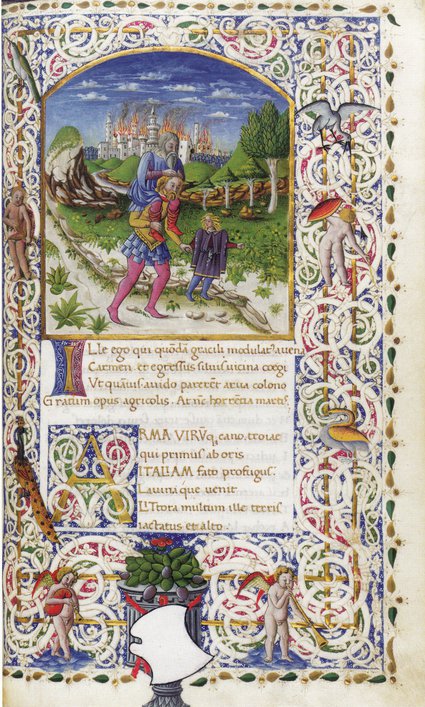 ILLe ego qui quōdā gracili modulat᾽ auena
Carmen. et egressus siluis uicina coegi
Vt quāuis auido parerēt arua colono
Gratum opus agricolis. At nc̄ horrētia martis
ARMA VIRV̄q cano, troiae
qui primus ab oris
ITALIAM fato profugus
Lauina que uenit
Littora multum ille terris
iactatus et alto.